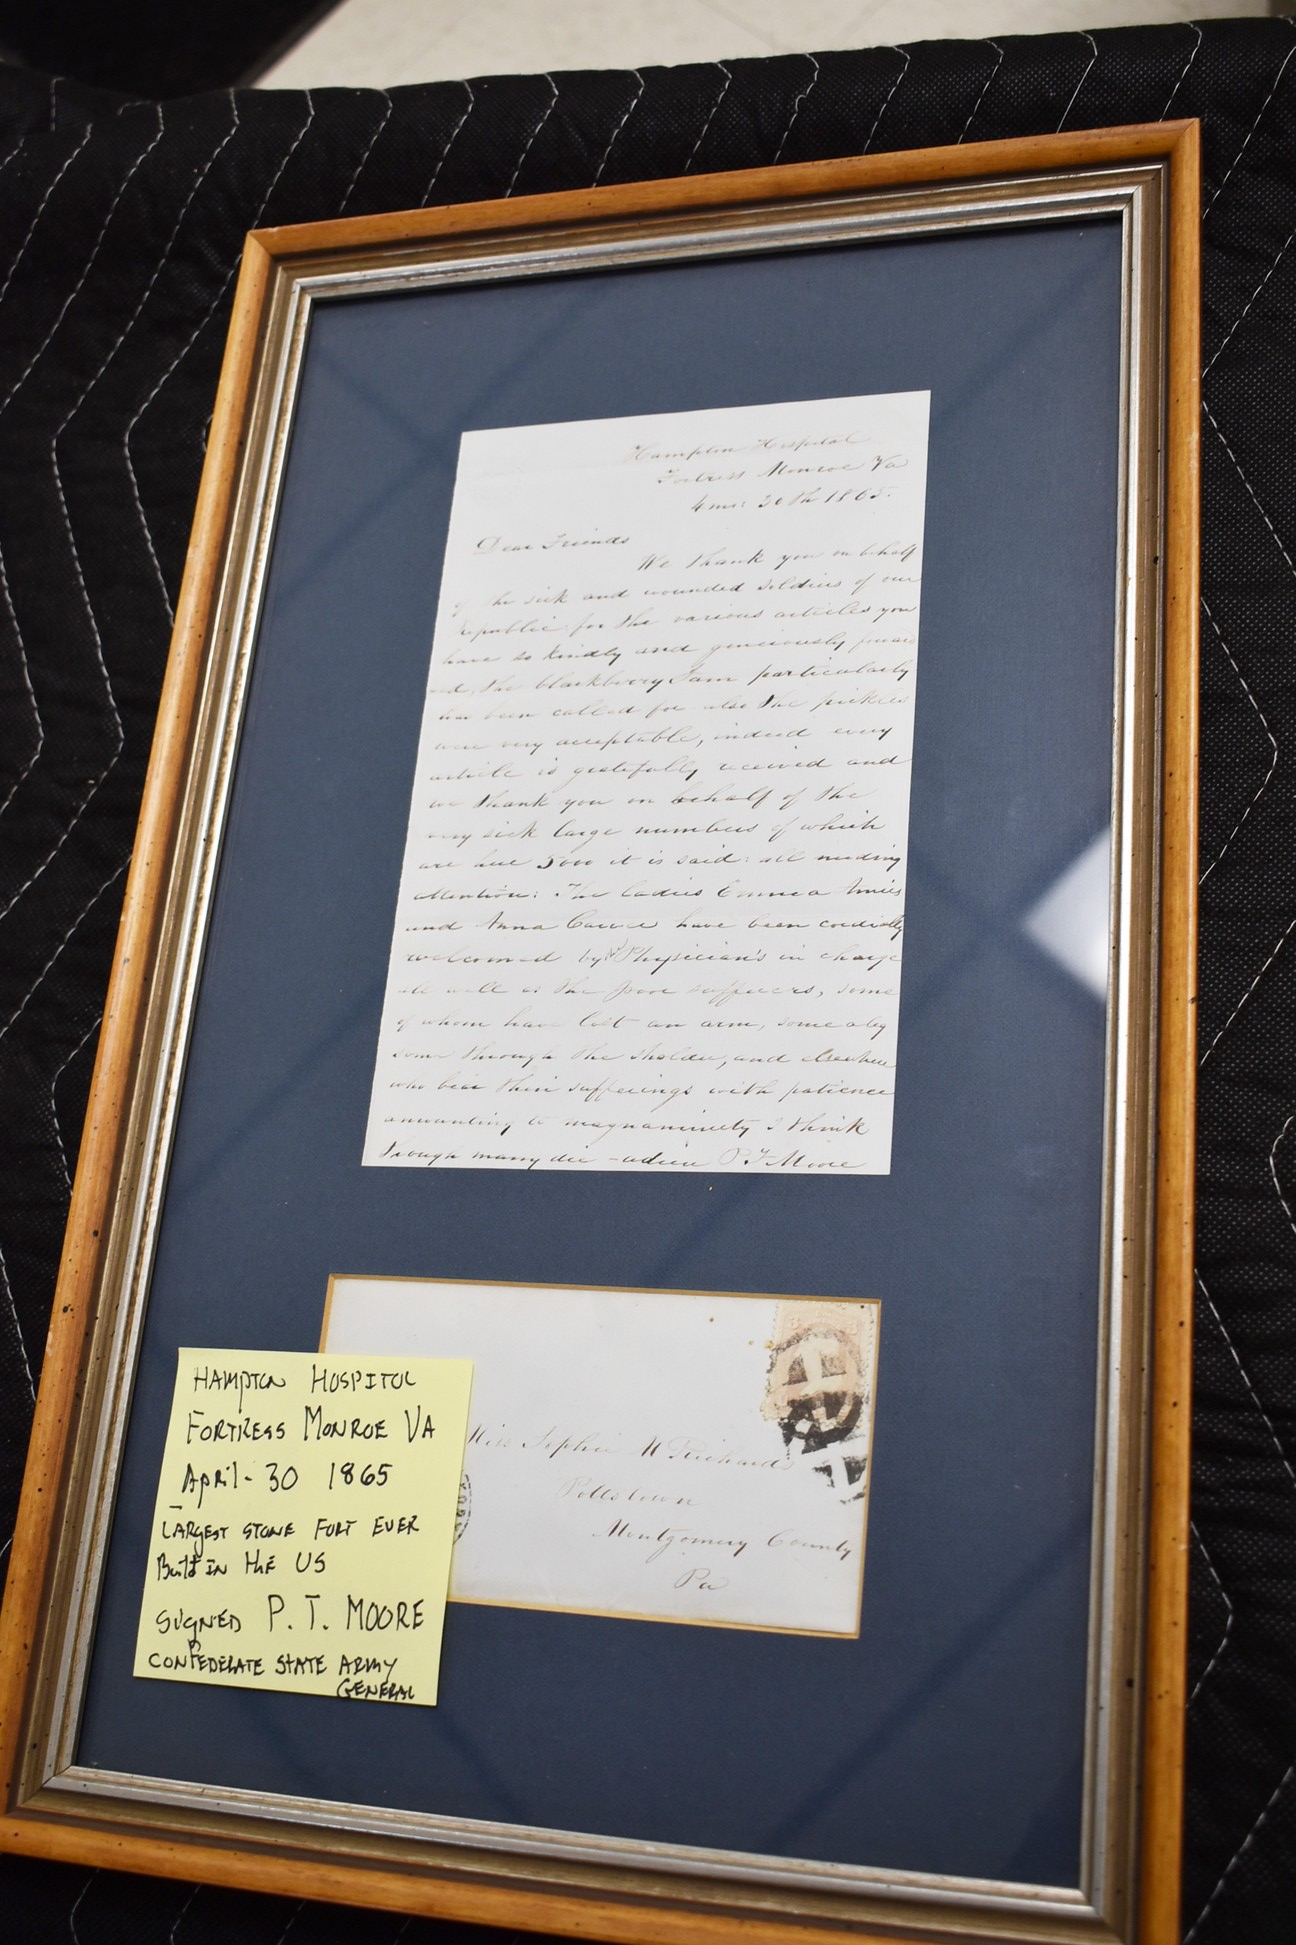 Hampton Hospital
Fortress Monroe Va
4 mo: 30th 1865.
Dear Friends
We thank you on behalf
of the sick and wounded soldiers of our
republic for the various articles you
have so kindly and generously forward
ed, the blackberry Jam particularly
has been called for also the pickles
were very acceptable, indeed every
article is gratefully received and
we thank you on behalf of the
very sick large numbers of which
are here 5000 it is said: all needing
attention: The ladies Emma
and Anna have been cordially
welcomed by Physician's in charge
as well as the poor sufferers, some
of whom have lost an arm, some a leg
some through the sholder, and elsewhere
who bear their sufferings with patience
amounting to magnaminety I think
though many die - adieu P T Moore
Miss Sophie N Richards
Pottstown
Montgomery County
Pa
HAMPTON HOSPITOL
FORTRESS MONROE VA
April - 30 1865
LARGEST STONE FORT EVER
Built IN tHE US
SIGNED P. T. MOORE
CONFEDERATE STATE ARMY
GENERAL